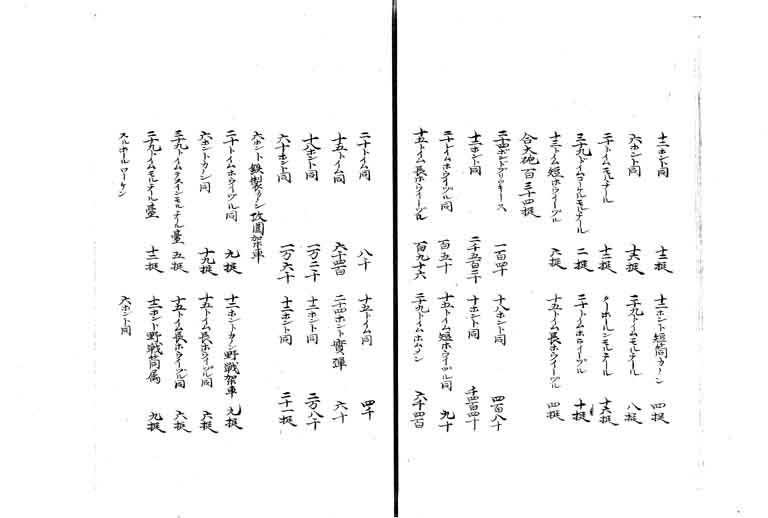 十二ホント同 十二挺 十二ホント短筒カノン 四挺
六ホント同 十六挺 二十九トイムモルチール 八挺
二十トイムモルチール 十二挺 ターホールンモルチール 十六挺
三十九トイムコーケルモルチール 二挺 二十トイムホウイーツル 十挺
十三トイム短ホウイーツル 六挺 十五トイム長ホウイーツル 四挺
合大砲百三十四挺
二十四ポンド 一百四十 十八ホント同 四百八十
十二ホント同 二千五百二十 十ホント同 千四百四十
二十トイムホウイツル同 百五十 十五トイム短ホウイツル同 九十
十五トイム長ホウイーツル 百九十六 二十九トイムホムメン 六千四百
二十トイム同 八十 十五トイム同 四千
十五トイム同 六千四百 二十四ホント實彈 六十
十八ホント同 一万二千 十二ホント同 二万八千
六十ホント同 一万六千 十二ホント同 二十一挺
六ホント鉄製カノン改圓架車
二十トイムホウイツル同 九挺 十二ホントカノン野戦架車 九挺
六ホントカノン同 十九挺 十五トイム長ホウイツル同 六挺
三十九トイムテスインモルチール臺 五挺 十五トイム長ホウイツル同 六挺
二十九トイムモルチール臺 十二挺 十二ホント野戦筒属 九挺
スルホールワーケン 六ホント同